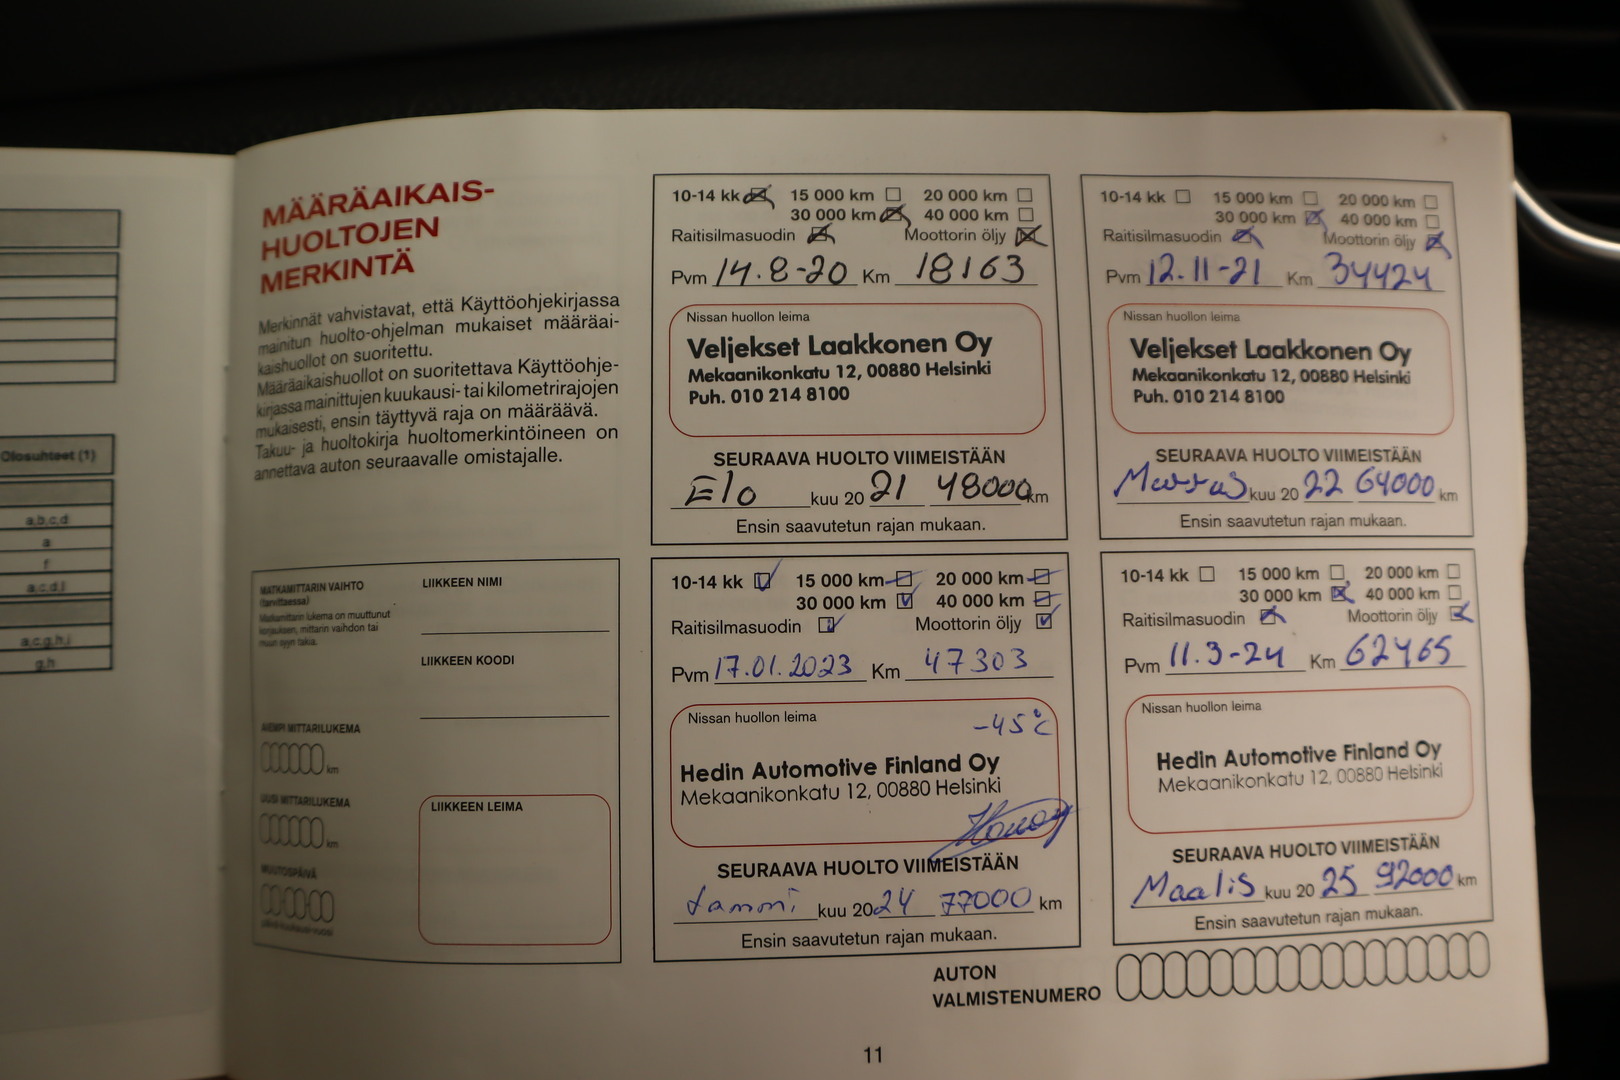 Olosuhteet (1)
a,b,c,d
a
f
a,c,d,i
a,c,g,h,i
g,h
MÄÄRÄAIKAIS-
HUOLTOJEN
MERKINTÄ
Merkinnät vahvistavat, että Käyttöohjekirjassa
mainitun huolto-ohjelman mukaiset määräai-
kaishuollot on suoritettu.
Määräaikaishuollot on suoritettava Käyttöohje-
kirjassa mainittujen kuukausi- tai kilometrirajojen
mukaisesti, ensin täyttyvä raja on määräävä.
Takuu- ja huoltokirja huoltomerkintöineen on
annettava auton seuraavalle omistajalle.
MATKAMITTARIN VAIHTO
(tarvittaessa)
Matkamittarin lukema on muuttunut
korjauksen, mittarin vaihdon tai
muun syyn takia.
AIEMPI MITTARILUKEMA
km
UUSI MITTARILUKEMA
km
MUUTOSPÄIVÄ
LIIKKEEN NIMI
LIIKKEEN KOODI
LIIKKEEN LEIMA
10-14 kk 15 000 km 20 000 km
30 000 km 40 000 km
Raitisilmasuodin Moottorin öljy
Pvm 14.8-20 Km 18163
Nissan huollon leima
Veljekset Laakkonen Oy
Mekaanikonkatu 12, 00880 Helsinki
Puh. 010 214 8100
SEURAAVA HUOLTO VIIMEISTÄÄN
Elo kuu 20 21 48000 km
Ensin saavutetun rajan mukaan.
10-14 kk 15 000 km 20 000 km
30 000 km 40 000 km
Raitisilmasuodin Moottorin öljy
Pvm 12.11-21 Km 34424
Nissan huollon leima
Veljekset Laakkonen Oy
Mekaanikonkatu 12, 00880 Helsinki
Puh. 010 214 8100
SEURAAVA HUOLTO VIIMEISTÄÄN
Marras kuu 20 22 64000 km
Ensin saavutetun rajan mukaan.
10-14 kk 15 000 km 20 000 km
30 000 km 40 000 km
Raitisilmasuodin Moottorin öljy
Pvm 17.01.2023 Km 47303
Nissan huollon leima
-45°C
Hedin Automotive Finland Oy
Mekaanikonkatu 12, 00880 Helsinki
SEURAAVA HUOLTO VIIMEISTÄÄN
tammi kuu 20 24 77000 km
Ensin saavutetun rajan mukaan.
10-14 kk 15 000 km 20 000 km
30 000 km 40 000 km
Raitisilmasuodin Moottorin öljy
Pvm 11.3-24 Km 62465
Nissan huollon leima
Hedin Automotive Finland Oy
Mekaanikonkatu 12, 00880 Helsinki
SEURAAVA HUOLTO VIIMEISTÄÄN
Maalis kuu 20 25 92000 km
Ensin saavutetun rajan mukaan.
AUTON
VALMISTENUMERO
11